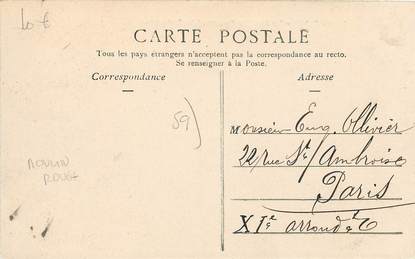 10 €
CARTE POSTALE
Tous les pays étrangers n'acceptent pas la correspondance au recto.
Se renseigner à la Poste.
Correspondance
Adresse
59)
MOULIN
ROUGE
Monsieur Eug. Ollivier
22 rue St/Ambroise
Paris
XIe arrondt